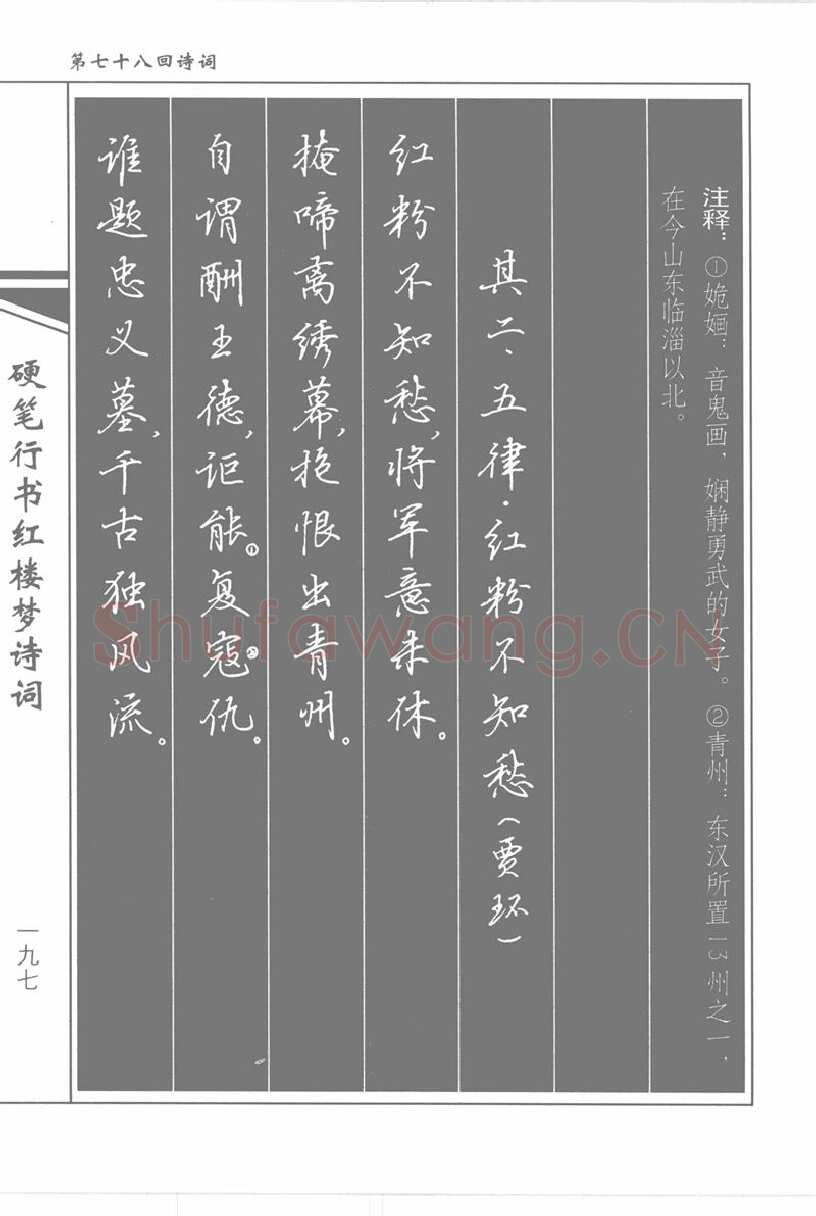 第七十八回诗词
注释：①姽婳：音鬼画，娴静勇武的女子。②青州：东汉所置13州之一，
在今山东临淄以北。
其二、五律·红粉不知愁（贾环）
红粉不知愁，将军意未休。
掩啼离绣幕，抱恨出青州。
自谓酬王德，讵能①复寇②仇。
谁题忠义墓，千古独风流。
硬笔行书红楼梦诗词
一九七
Shufawang.CN